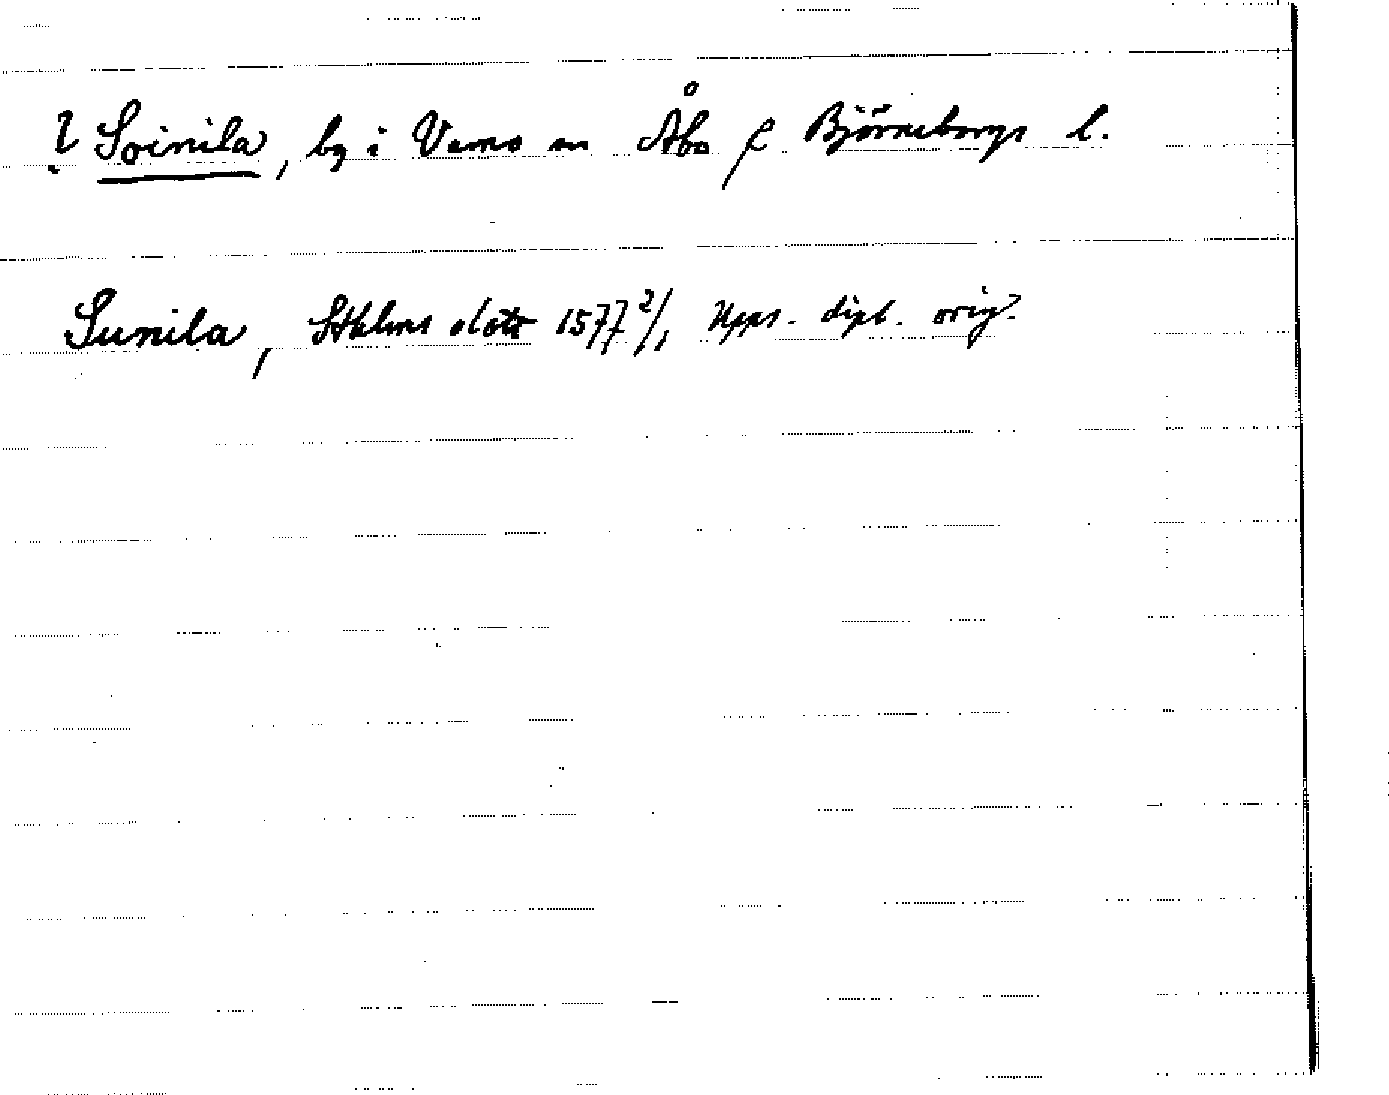 ? Soinila, by i Vemo sn Åbo & Björneborgs l.
Sunila, Sthlms slott 1577 2/1 Upps. dipl. orig.